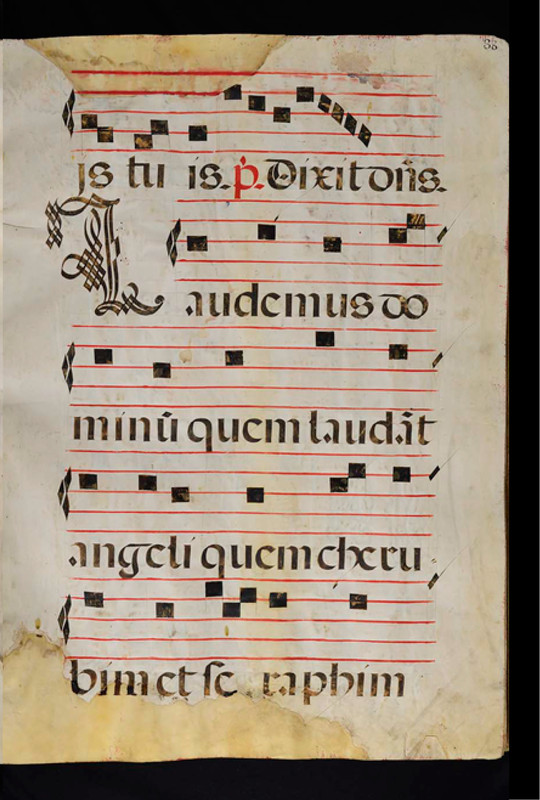 68
is tu is. p. Dixit dn̄s.
Laudemus do
minū quem laudāt
angeli quem cheru
bim et se raphim